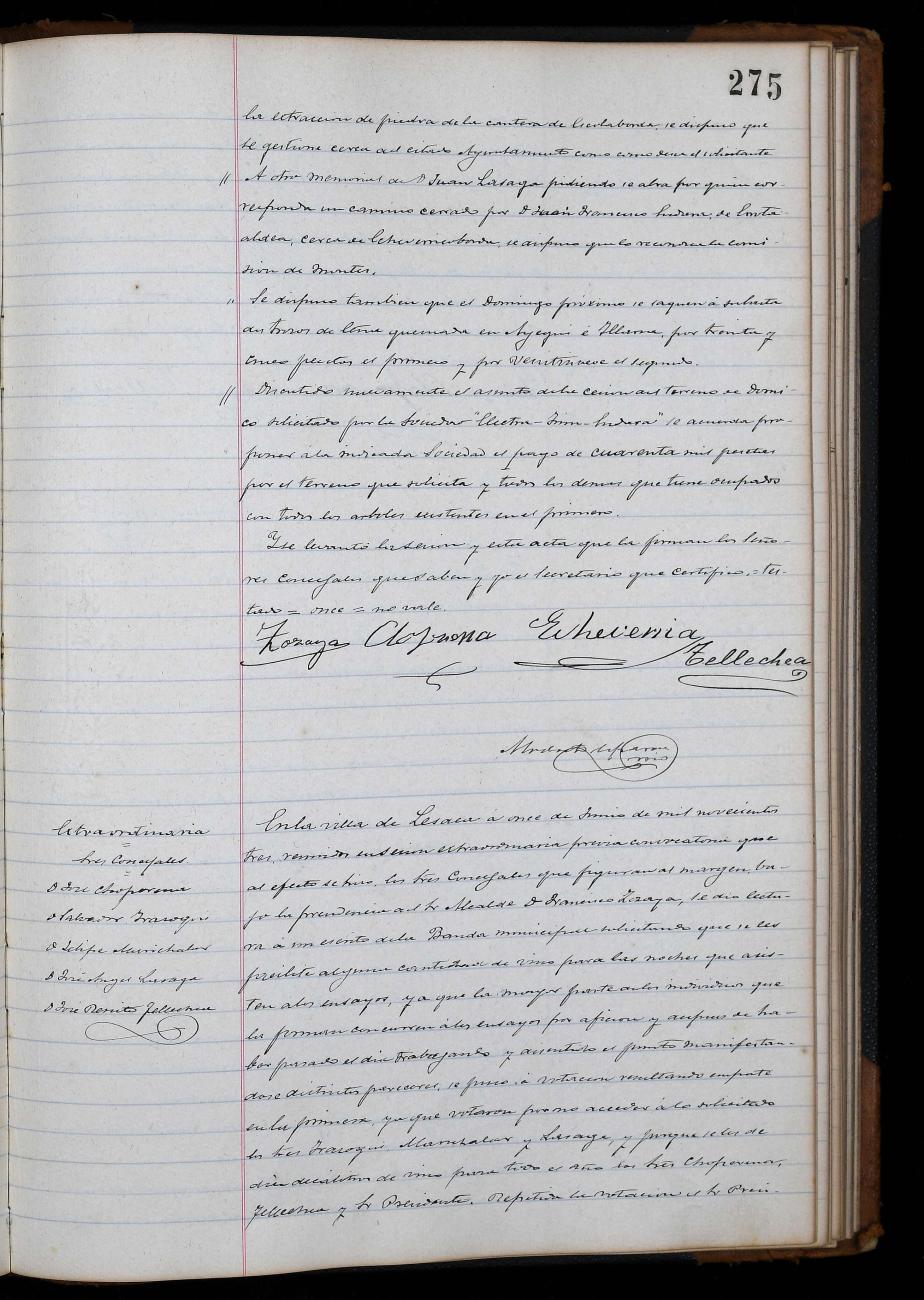 275
la extraccion de piedra de la cantera de Escolaborda, se dispuso que
se gestione cerca del citado Ayuntamiento como desea el solicitante
// A otro memorial de D Juan Lasaga pidiendo se abra por quien cor-
responda un camino cerrado por D Juan Francisco Indura, de
aldea, cerca de Echeverriborda, se dispuso que lo reconozca la comi-
sion de montes.
" Se dispuso tambien que el Domingo próximo se saquen á subasta
dos trozos de quemada en Ayegui é Illarra, por treinta y
cinco pesetas el primero y por veintinueve el segundo.
// Discutido nuevamente el asunto de la cesion del terreno de Domi-
co solicitado por la Sociedad "Electra-Irun-Endara" se acuerda pro-
poner á la indicada Sociedad el pago de cuarenta mil pesetas
por el terreno que solicita y todos los demas que tiene ocupados
con todos los arboles existentes en el primero.
Y se levantó la sesion y esta acta que la firman los Seño-
res Concejales que saben y yo el Secretario que certifico. = tes-
tado = once = no vale.
Zozaya Choperena Echeverria
Tellechea
Extraordinaria
Sres Concejales
D José Choperena
D Salvador Irazoqui
D Felipe Marichalar
D José Angel Lasaga
D José Benito Tellechea
En la villa de Lesaca á once de Junio de mil novecientos
tres, reunidos en sesion extraordinaria previa convocatoria que
al efecto se hizo, los Sres Concejales que figuran al margen, ba-
jo la presidencia del Sr Alcalde D Francisco Zozaya, se dio lectu-
ra á un escrito de la Banda municipal solicitando que se les
facilite alguna cantidad de vino para las noches que asis-
ten a los ensayos, ya que la mayor parte de los individuos que
la forman concurren á los ensayos por aficion y despues de ha-
ber pasado el dia trabajando y discutido el punto manifestan-
dose distintos pareceres, se puso á votacion resultando empate
en la primera, ya que votaron por no acceder á lo solicitado
los Sres Irazoqui, Marichalar y Lasaga, y porque se les de
diez decalitros de vino para todo el año los Sres Choperena,
Tellechea y Sr Presidente. Repetida la votacion el Sr Presi-